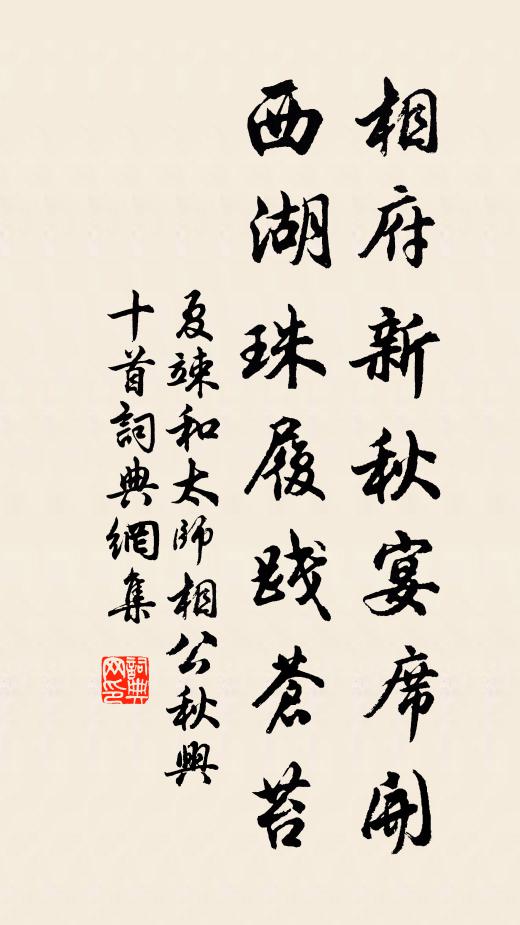 相府新秋宴席開
西湖珠履踐蒼苔
夏竦和太師相公秋興
十首詞典網集
詞典
网印